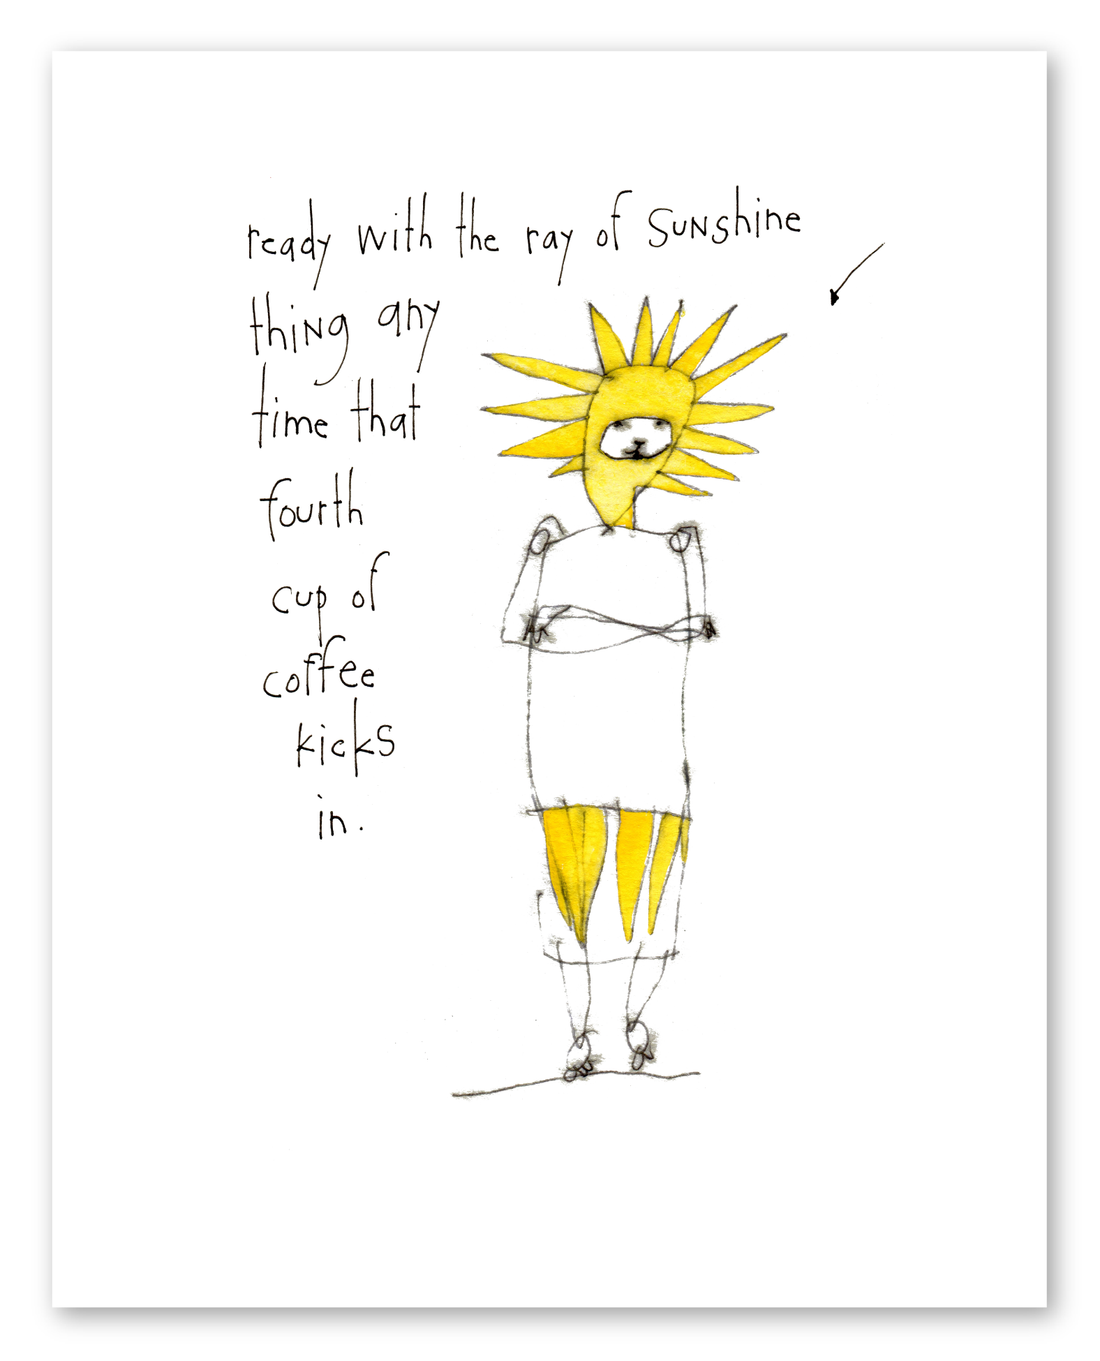 ready with the ray of sunshine
thing any
time that
fourth
cup of
coffee
kicks
in.